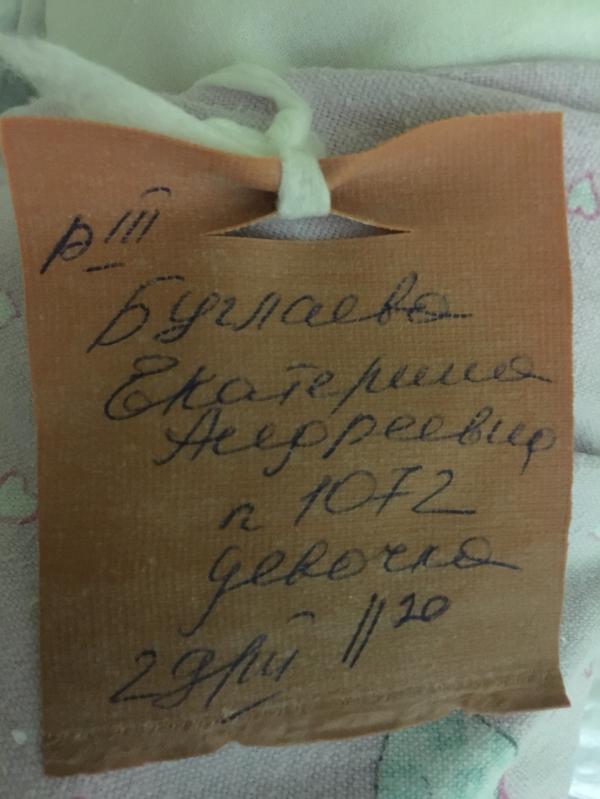 р III
Буглаева
Екатерина
Андреевна
п 1072
девочка
11²⁰